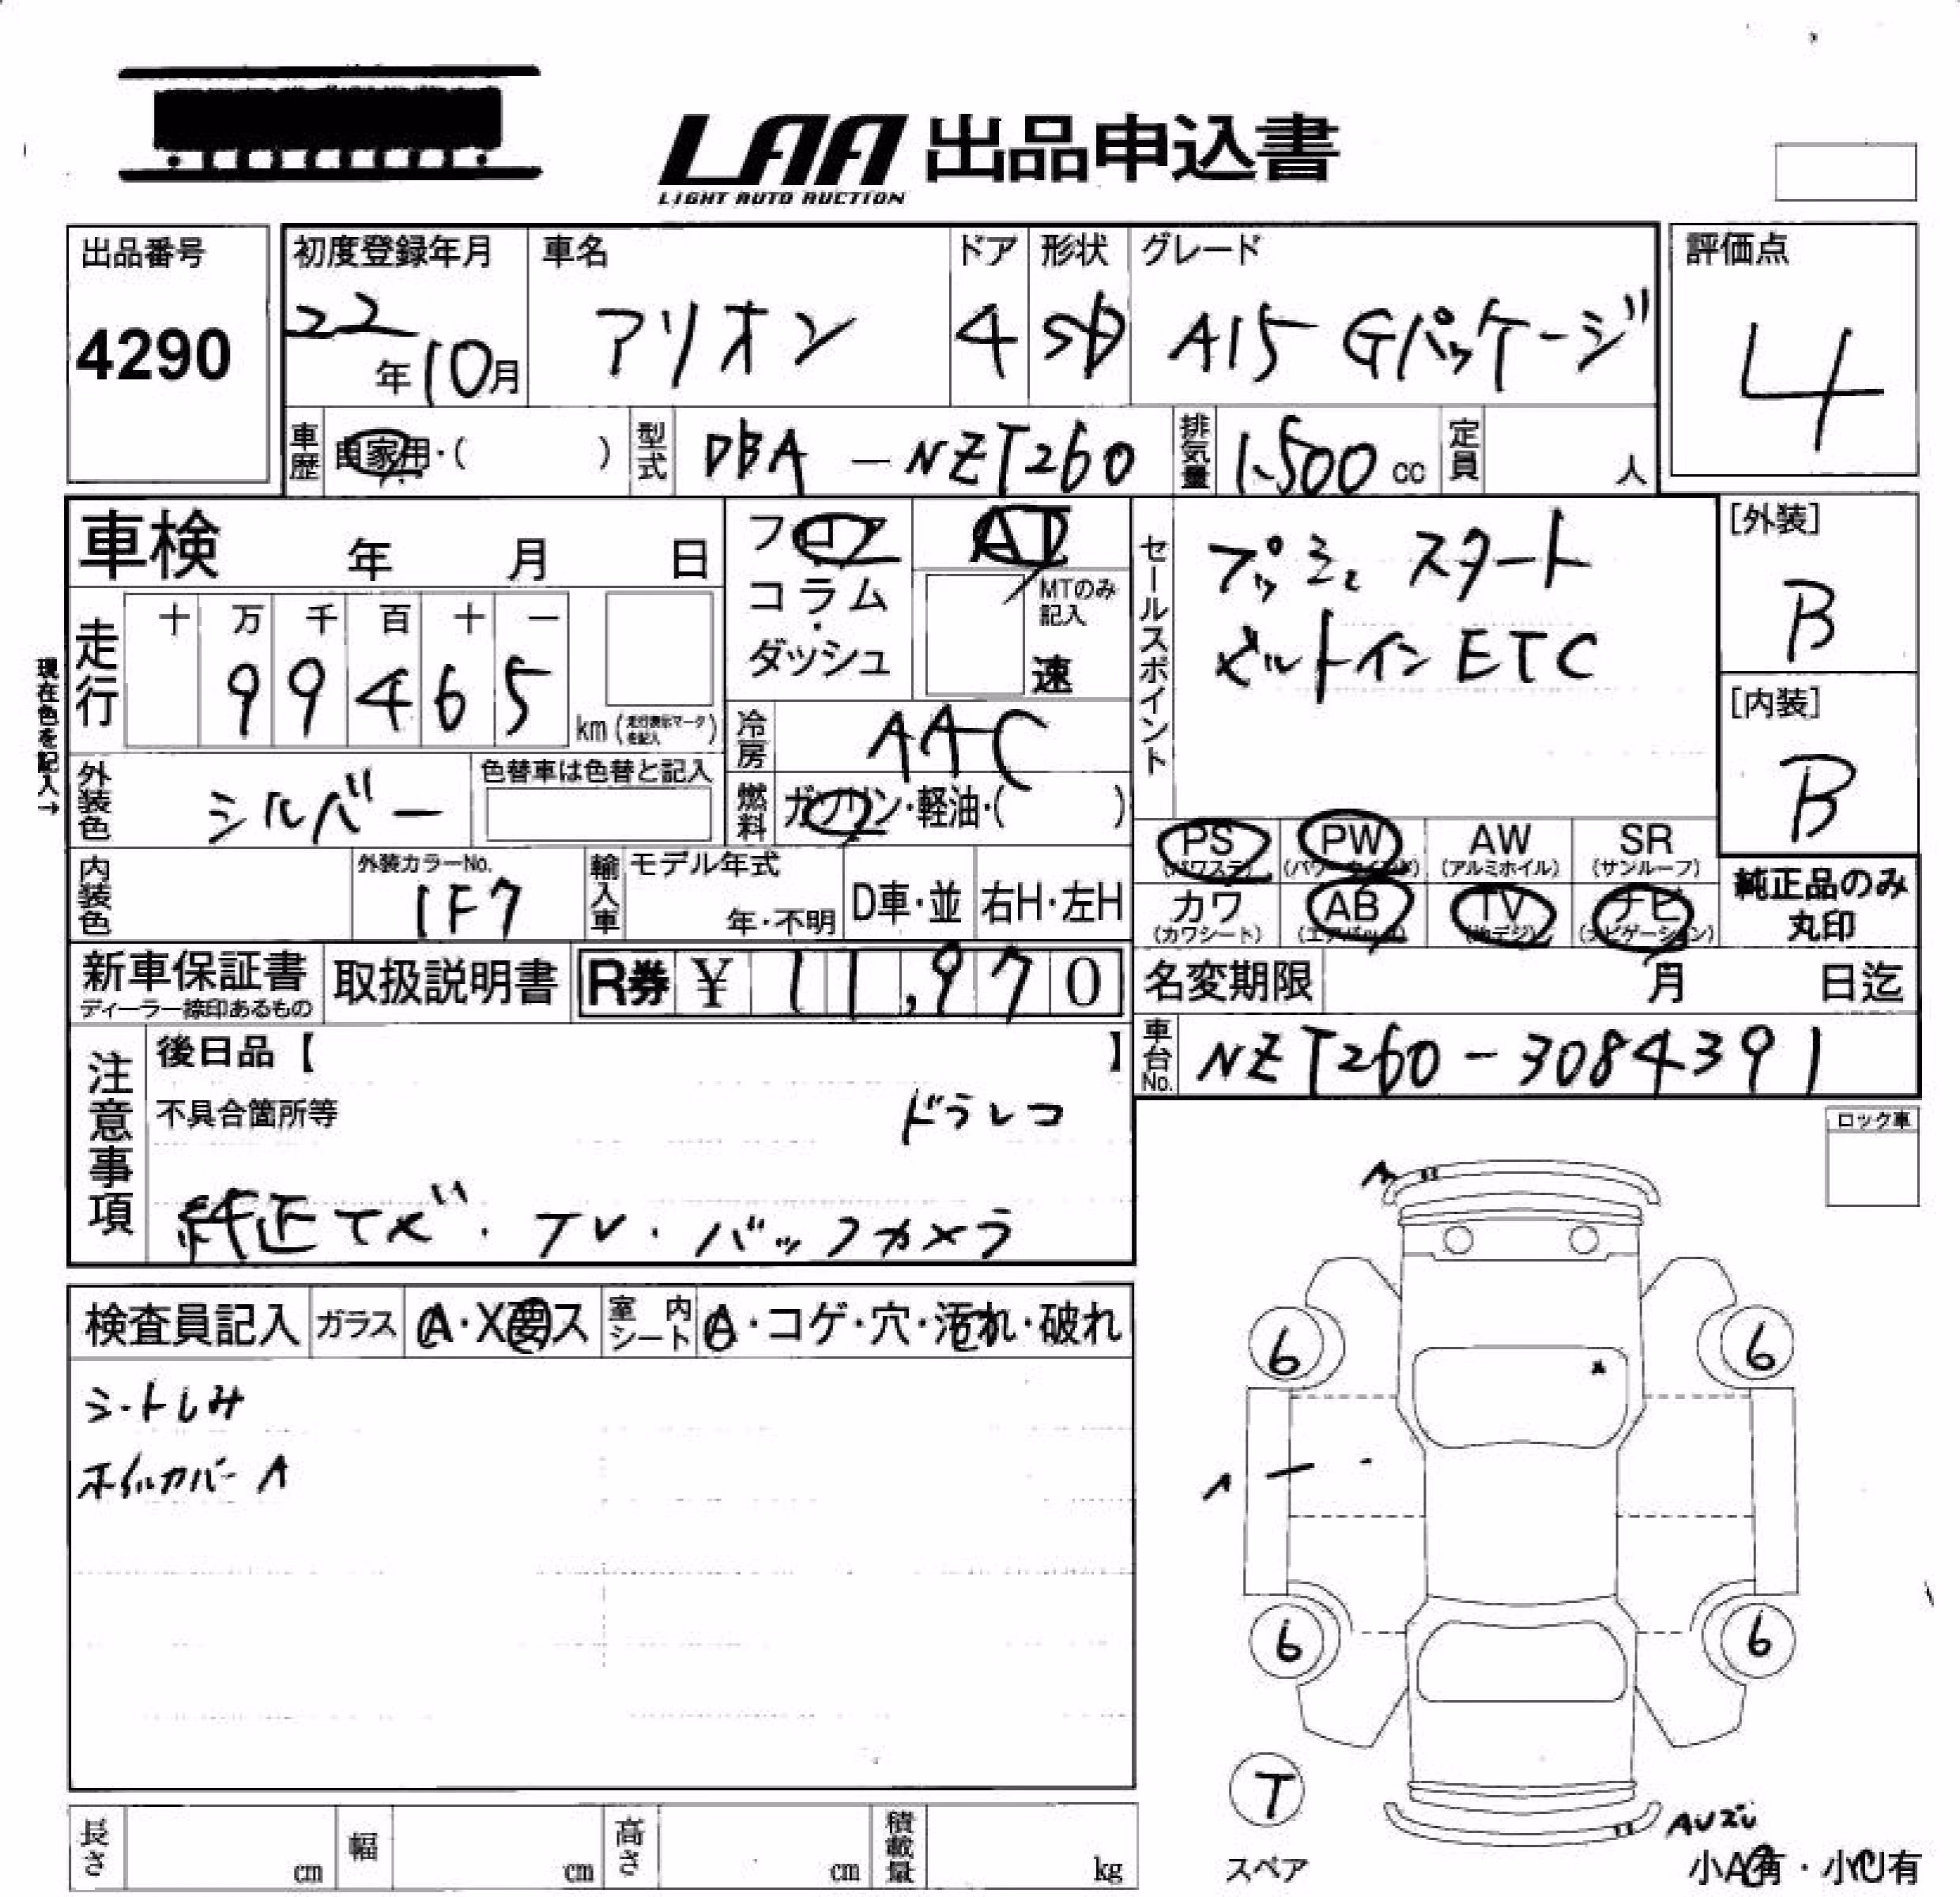 LAA 出品申込書
LIGHT AUTO AUCTION
出品番号
4290
初度登録年月 車名 ドア 形状 グレード
22年10月 アリオン 4 SD A15 Gパッケージ
評価点
4
車歴 自家用・( ) 型式 DBA-NZT260 排気量 1,500cc 定員 人
車検 年 月 日
フロア AT
コラム・
ダッシュ
MTのみ
記入
速
セールスポイント
プッシュスタート
ビルトインETC
[外装]
B
[内装]
B
現在色を記入→
走行 十 万 千 百 十 一
99465 km (走行表示マークを記入)
冷房 AAC
外装色 シルバー 色替車は色替と記入
燃料 ガソリン・軽油・( )
PS AW SR
PW
(パワステ) (パワーウインド) (アルミホイル) (サンルーフ)
カワ AB TV ナビ
(カワシート) (エアバッグ) (地デジ) (ナビゲーション)
純正品のみ
丸印
内装色 外装カラーNo. 1F7
輸入車 モデル年式 年・不明 D車・並 右H・左H
新車保証書
ディーラー捺印あるもの
取扱説明書
R券 ¥ 11,970
名変期限 月 日迄
車台No. NZT260-3084391
注意事項
後日品【 】
不具合箇所等 ドラレコ
純正 ・TV・バックカメラ
ロック車
検査員記入 ガラス A・X要ス 室内シート A・コゲ・穴・汚れ・破れ
シートしみ
ホイルカバーA
A
6 6
A
6 6
T
スペア
小A有・小U有
長さ cm 幅 cm 高さ cm 積載量 kg